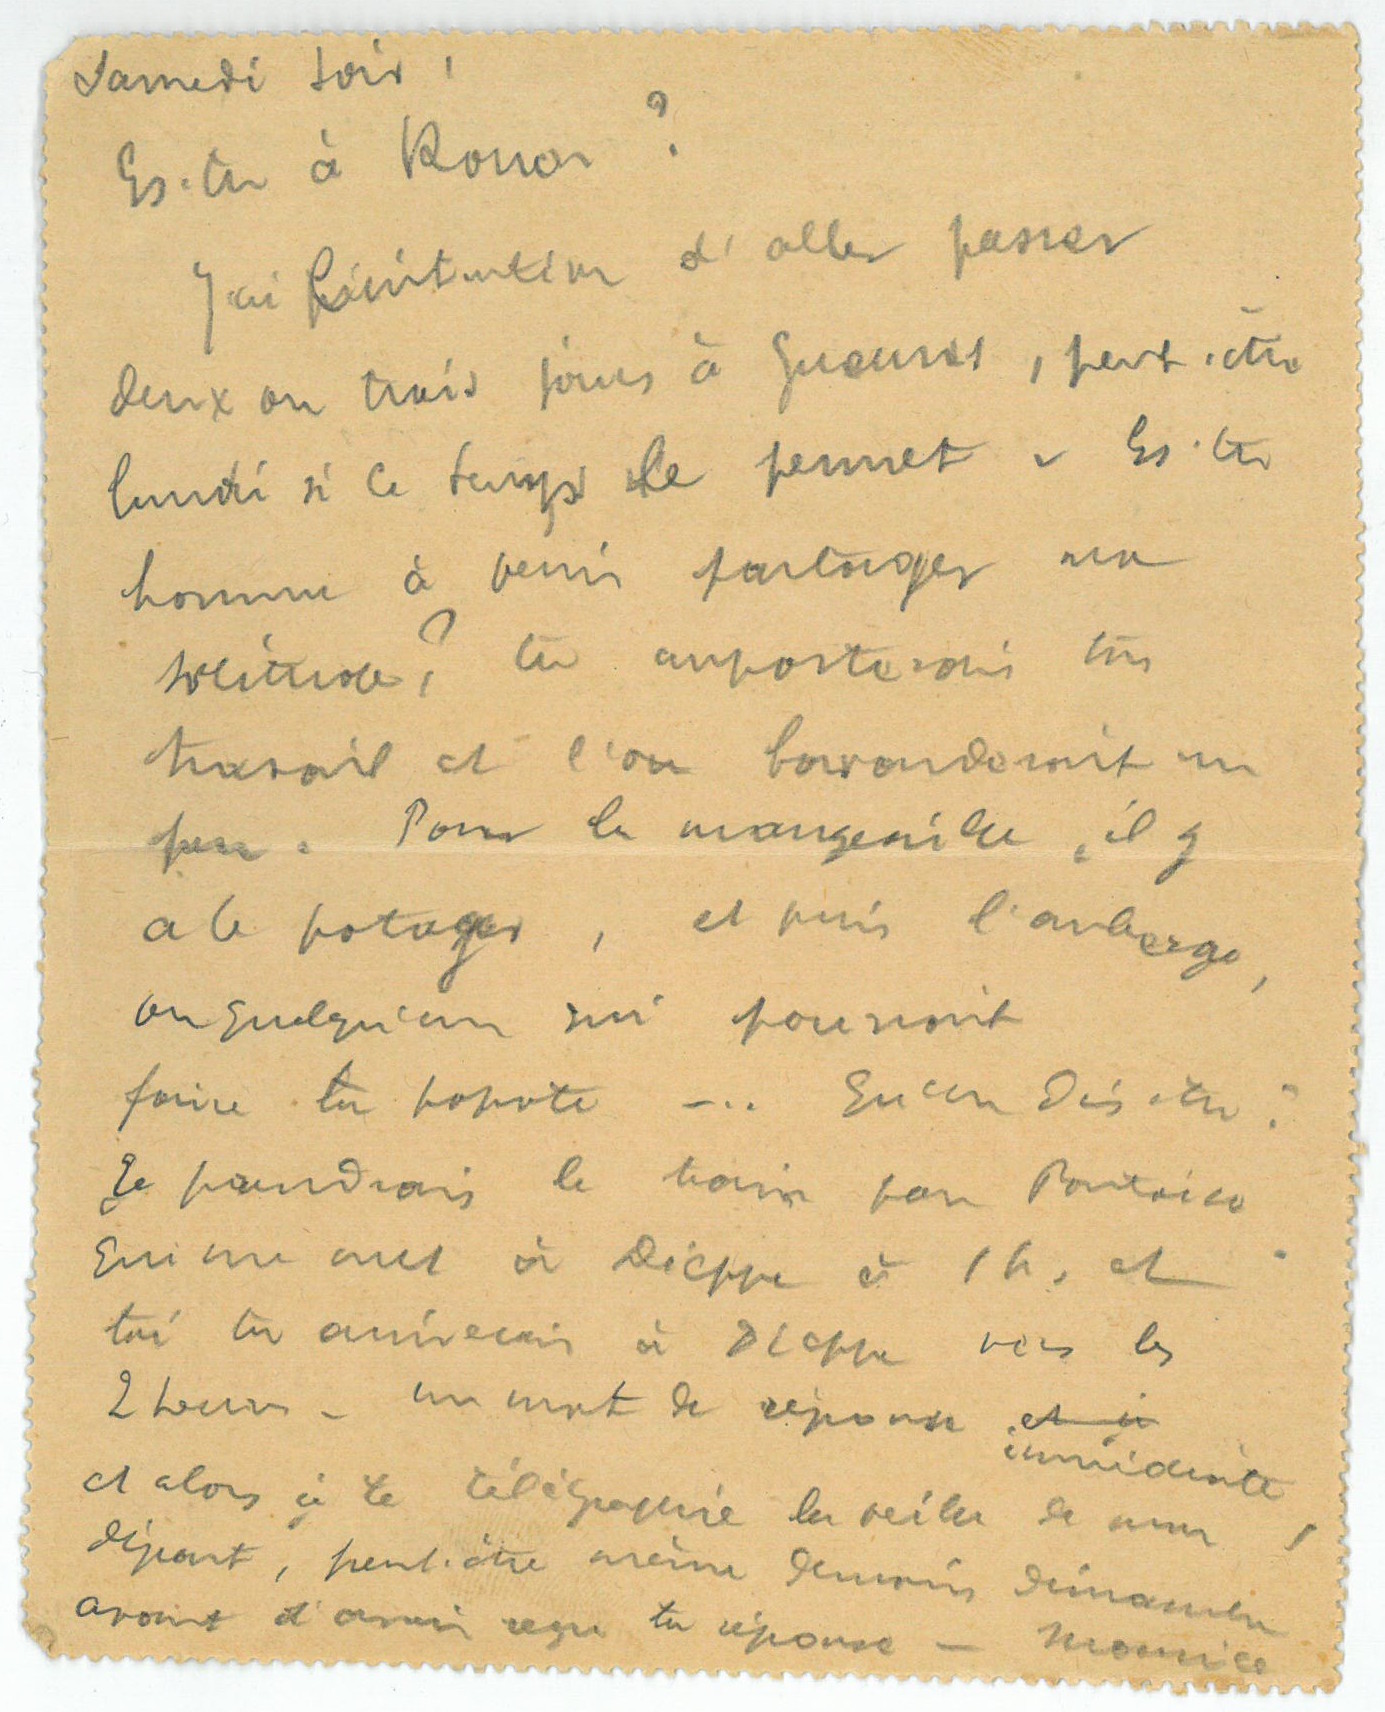 Samedi soir,
Es-tu à Rouen ?
J'ai l'intention d'aller passer
deux ou trois jours à Gueures, peut-être
lundi si le temps le permet - Es-tu
homme à venir partager ma
solitude ? tu apporterais ton
travail et l'on bavarderait un
peu. Pour la mangeaille, il y
a le potager, et puis l'auberge,
ou quelqu'un qui pourrait
faire la popote ... Qu'en dis-tu ?
Je prendrais le train par Pontoise
qui me met à Dieppe à 1 h, et
toi tu arriverais à Dieppe vers les
2 heures - un mot de réponse et je
immédiate,
et alors je te télégraphie la veille de mon
départ, peut-être même demain dimanche
avant d'avoir reçu ta réponse - Maurice